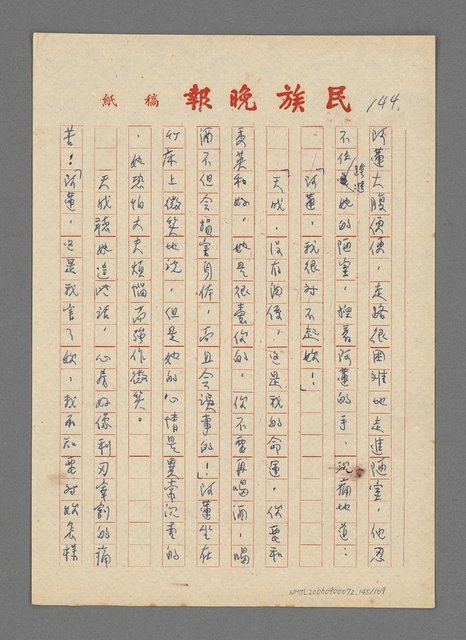 民族晚報 稿紙
144.
阿蓮大腹便便,走路很困難地走進陋室,他忍
不住跨進她的陋室,撫著阿蓮的手,沉痛地道:
「阿蓮,我很對不起妳!」
「天成,沒有關係,這是我的命運,你要和
秀英和好,她是很愛你的,你不要再喝酒,喝
酒不但會損害身体,而且會誤事的!」阿蓮坐在
竹床上微笑地說,但是她的心情是異常沉重的
,她恐怕丈夫煩惱而強作微笑。
天成聽她這些話,心房好像利刃宰割的痛
苦!「阿蓮,這是我害了妳,我不知要對妳怎樣
NMTL20060900072.145/169